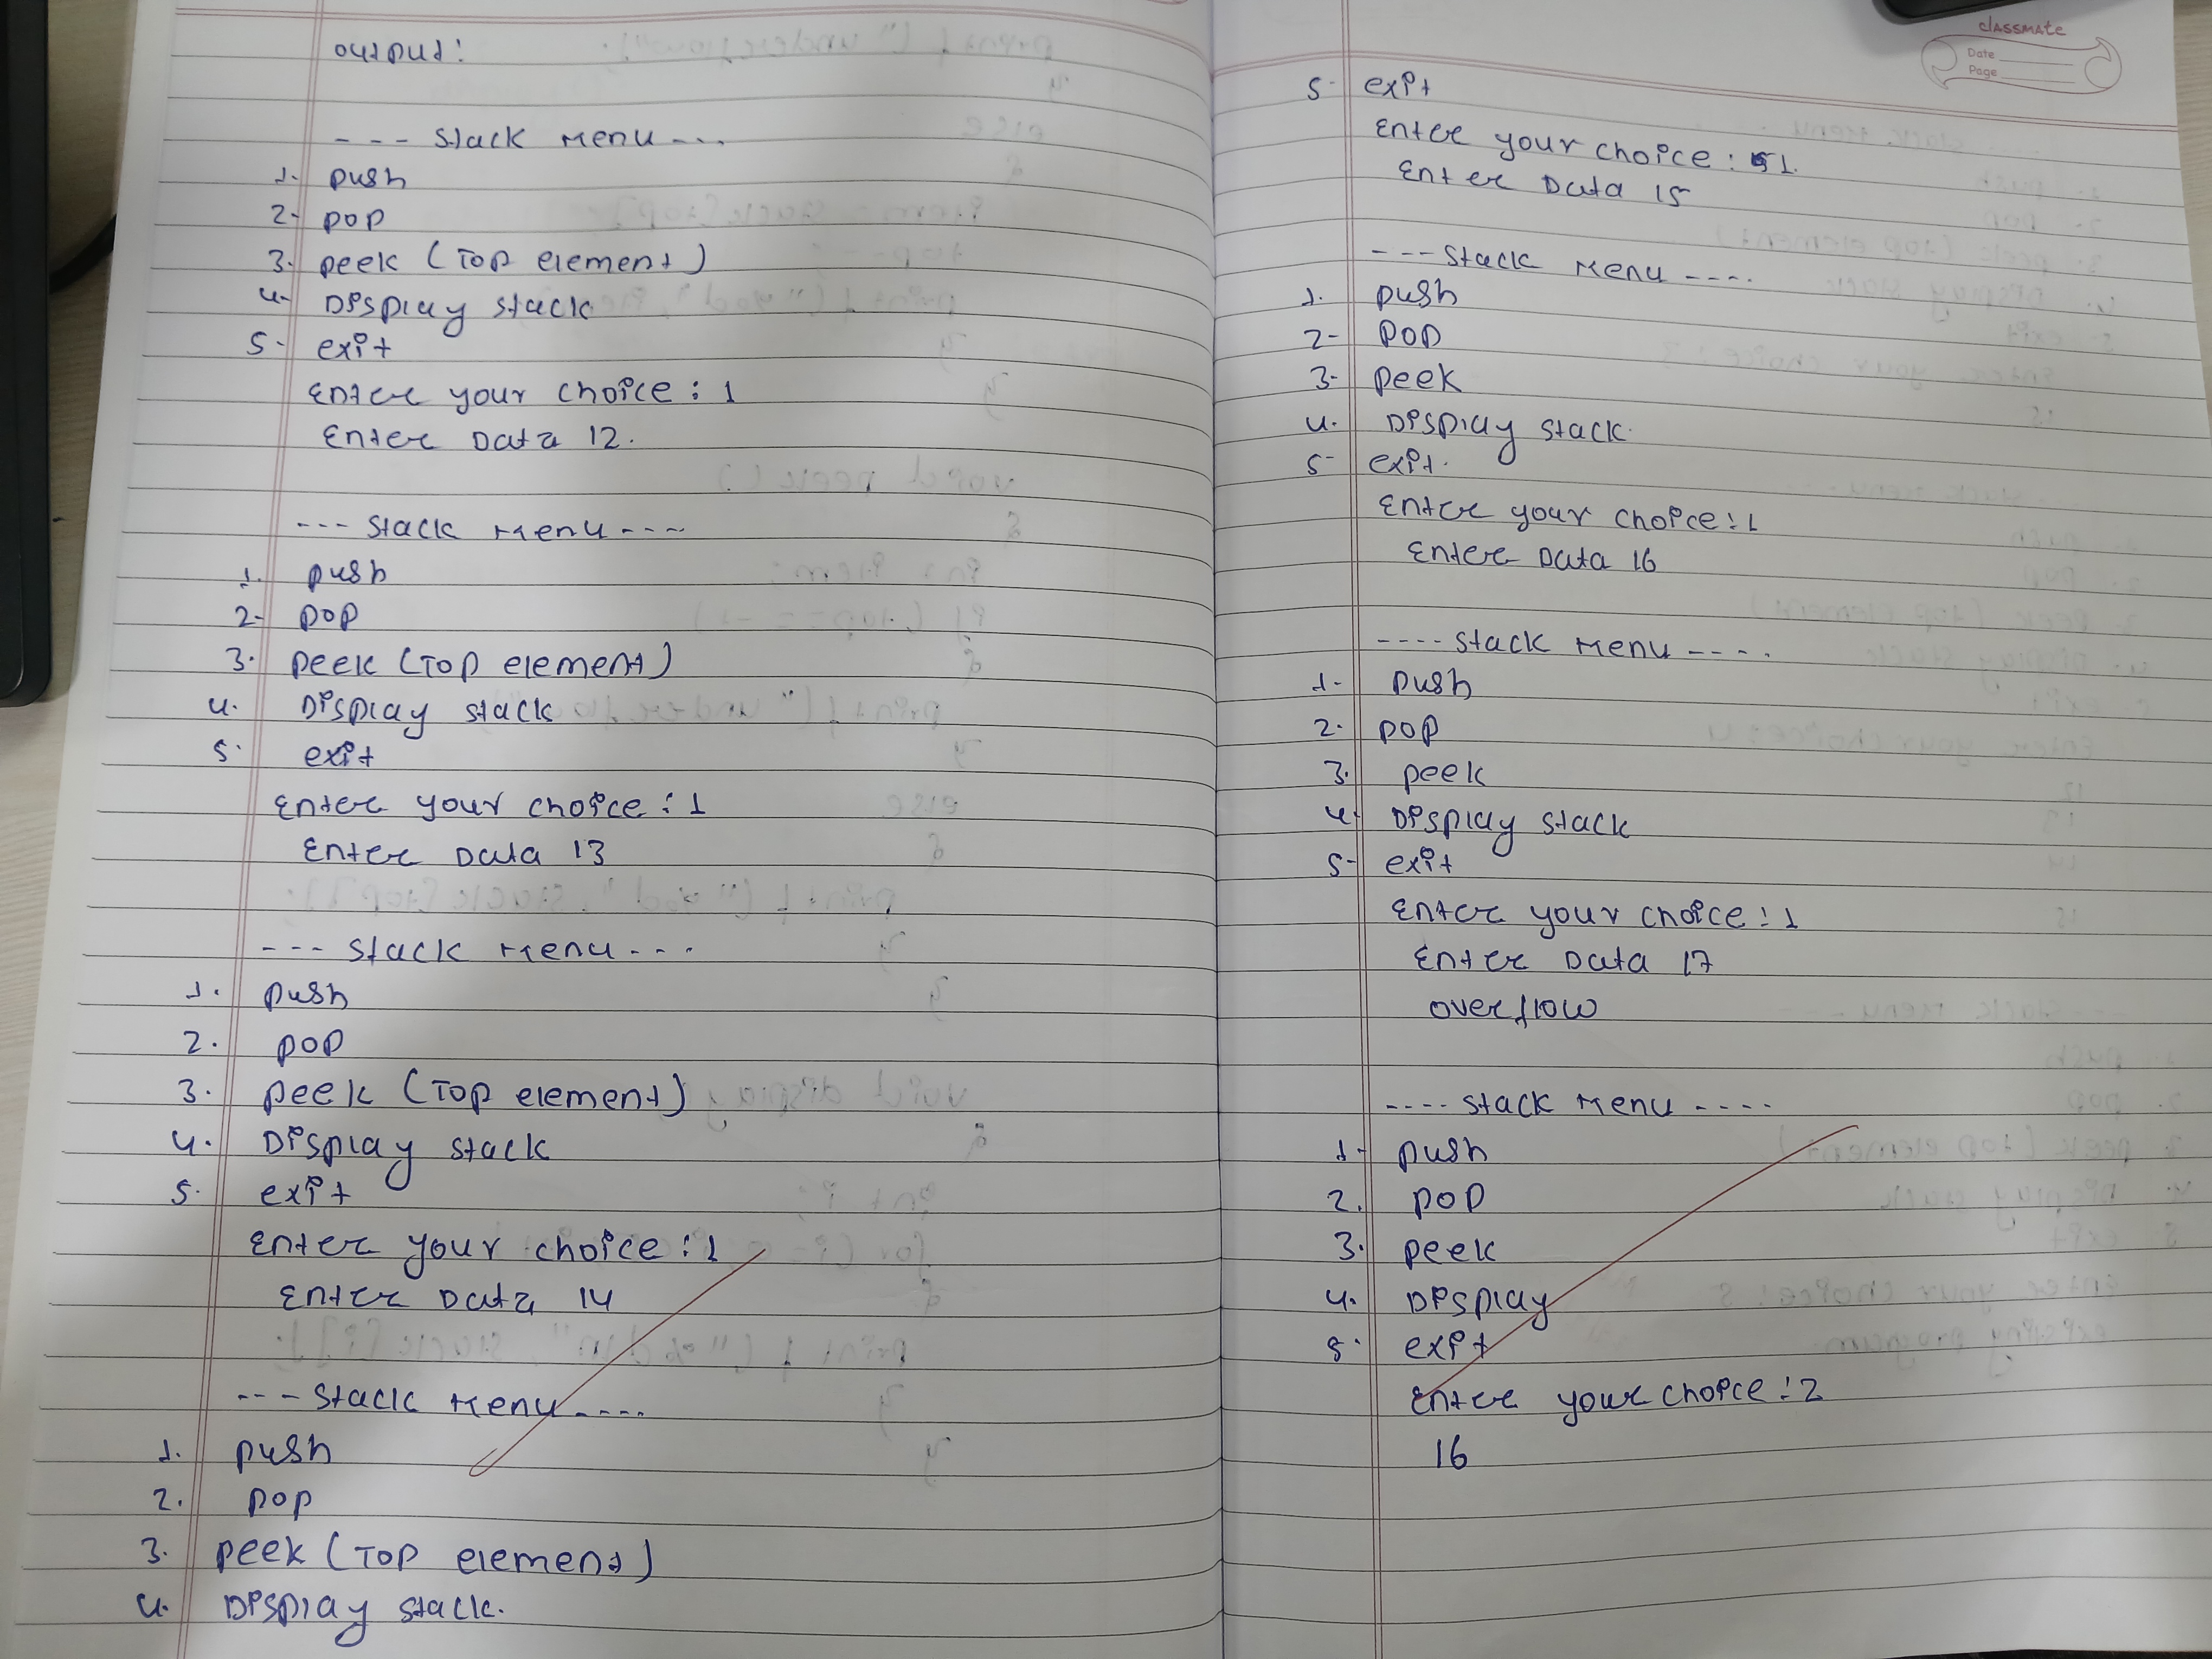 output:
---- stack menu----
1. push
2. pop
3. peek (Top element)
4. Display stack
5. exit
Enter your choice : 1
Enter Data 12.
--- stack menu----
1. push
2. pop
3. peek (Top element)
4. Display stack
5. exit
Enter your choice : 1
Enter Data 13
---- stack menu---.
1. push
2. pop
3. peek (Top element)
4. Display stack
5. exit
Enter your choice : 1
Enter Data 14
--- stack menu----
1. push
2. pop
3. peek (Top element)
4. Display stack.
classmate
Date
Page
5. exit
Enter your choice : 1.
Enter Data 15
----stack menu----.
1. push
2. pop
3. peek
4. Display stack.
5. exit.
Enter your choice:1
Enter Data 16
----stack menu----.
1. push
2. pop
3. peek
4. Display stack
5. exit
Enter your choice:1
Enter Data 17
overflow
----stack menu----.
1. push
2. pop
3. peek
4. Display
5. exit
Enter your choice:2
16